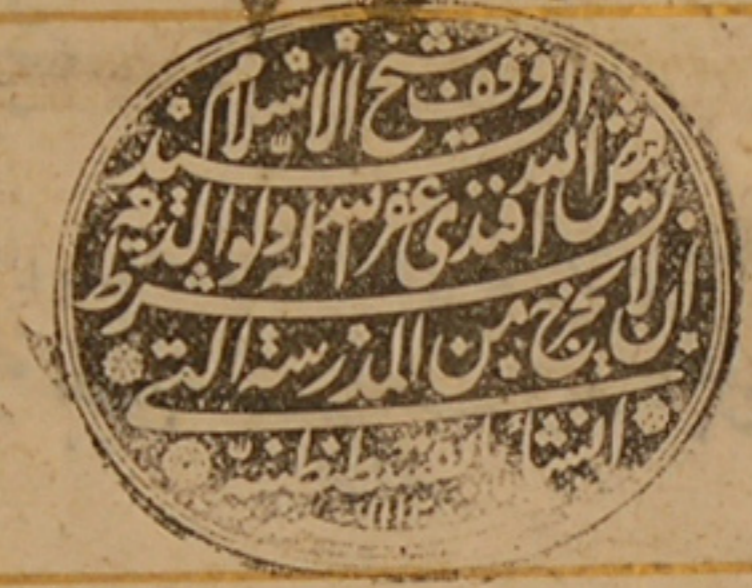 وقف شيخ الاسلام السيد
فيض الله افندى غفر الله له ولوالديه
بشرط ان لا يخرج من المدرسة التى
انشأها بقسطنطينية
١١١٢